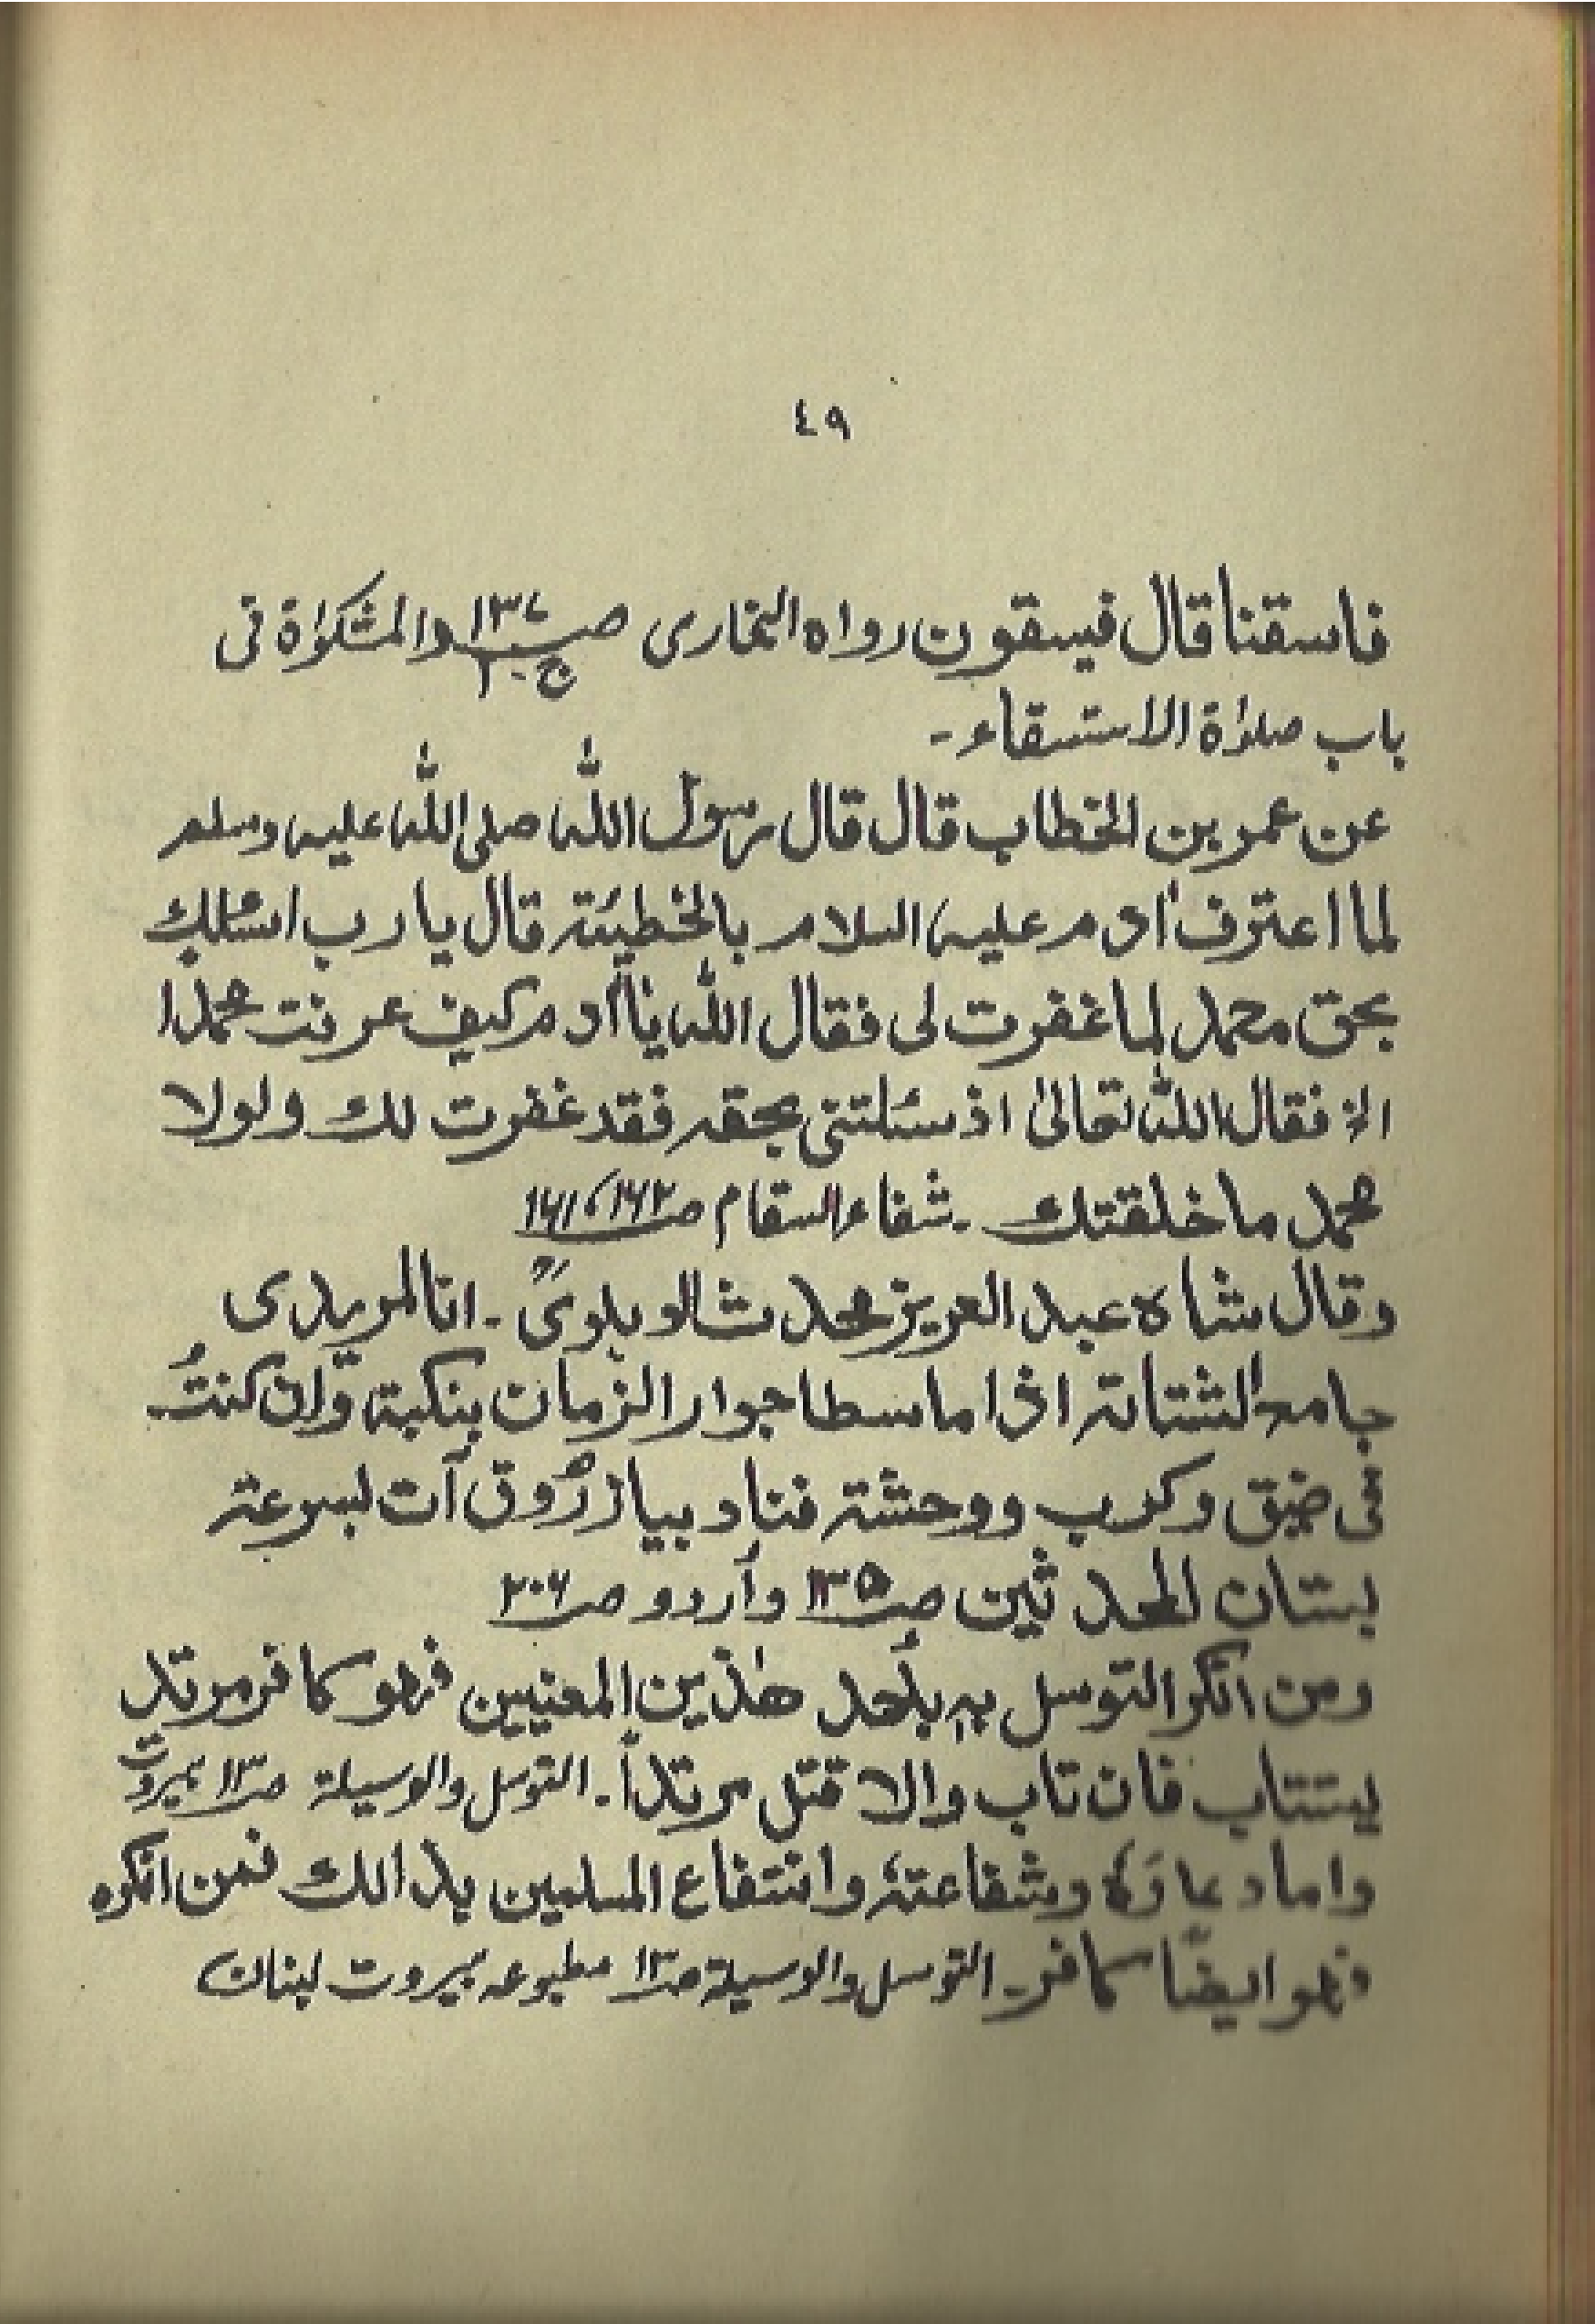 ٤٩
فاسقنا قال فيسقون رواه البخارى صـ١٣٧ـ والمشكوٰة فى
ج ـ ١
باب صلوٰة الاستسقاء ـ
عن عمر بن الخطاب قال قال رسول الله صلى الله عليه وسلم
لما اعترف اٰدم عليه السلام بالخطيئة قال يا رب اسئلك
بحق محمد لما غفرت لى فقال الله يا اٰدم كيف عرفت محمدا
الخ فقال الله تعالىٰ اذ سئلتنى بحقه فقد غفرت لك ولولا
محمد ما خلقتك ـ شفاء السقام صـ١٦١، ١٦٢
وقال شاه عبد العزيز محدث الدهلوىؒ ـ انا لمريدى
جامع لشتاته اذا ما سطا جوار الزمان بنكبة، وَّاِن كنتُ
فى ضيق وكرب ووحشة فناد بيا زرُّوق آت بسرعة
بستان المحدثين صـ١٣٥ وأردو صـ٢٠٦
ومن انكر التوسل به بأحد هٰذين المعنيين فهو كافر مرتد
يستتاب فان تاب والا قتل مرتداً ـ التوسل والوسيلة صـ١٣ بيروت
واما دعاؤه وشفاعته وانتفاع المسلمين بذالك فمن انكره
فهو ايضًا كافر ـ التوسل والوسيلة صـ١٣ مطبوعه بيروت لبنان